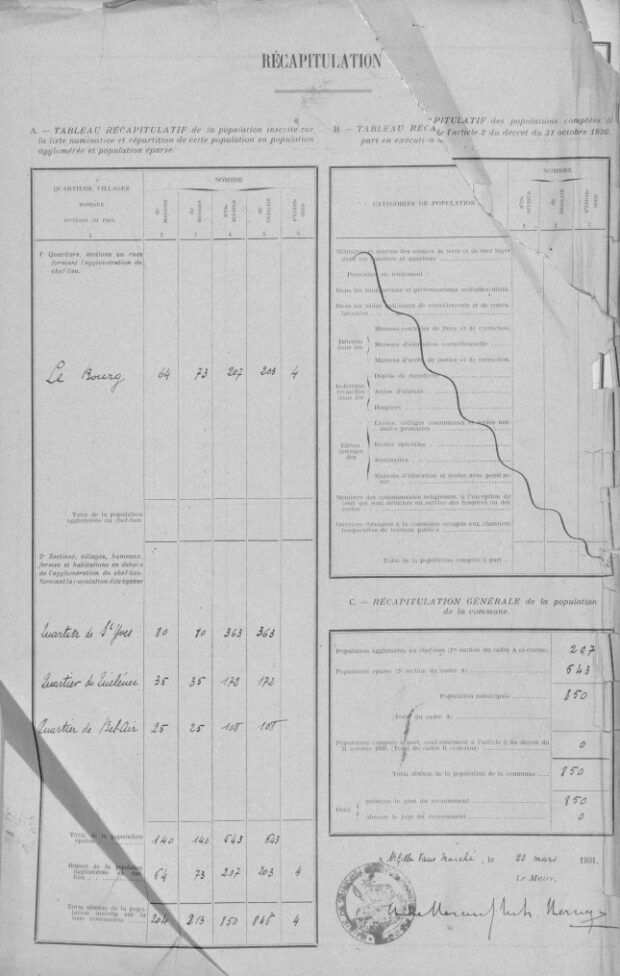 RÉCAPITULATION
A. — TABLEAU RÉCAPITULATIF de la population inscrite sur
la liste nominative et répartition de cette population en population
agglomérée et population éparse.
QUARTIERS, VILLAGES
HAMEAUX
sections ou rues
NOMBRE
de maisons
de ménages
d'in- scrits
de français
d'étran- gers
1 2 3 4 5 6
1° Quartiers, sections ou rues
formant l'agglomération du
chef-lieu.
Le Bourg 64 73 207 203 4
Total de la population
agglomérée au chef-lieu.
2° Sections, villages, hameaux,
fermes et habitations en dehors
de l'agglomération du chef-lieu,
formant la population dite éparse
Quartier de St Yves 80 80 363 363
Quartier du Quélénec 35 35 172 172
Quartier de Bel-Air 25 25 108 108
Total de la population
éparse 140 140 643 643
Report de la population
agglomérée au chef-
lieu 64 73 207 203 4
Total général de la popu-
lation inscrite sur la
liste nominative 204 213 850 846 4
B. — TABLEAU RÉCAPITULATIF des populations comptées à
part en exécution de l'article 2 du décret du 31 octobre 1930.
CATÉGORIES DE POPULATION
NOMBRE
1 2 3
Militaires et marins des armées de terre et de mer logés
dans les casernes et quartiers
Personnes en traitement :
Dans les sanatoriums et préventoriums antituberculeux.
Détenus
dans les
Maisons centrales de force et de correction.
Maisons d'éducation correctionnelle
Maisons d'arrêt, de justice et de correction.
Individus
recueillis
dans les
Dépôts de mendicité
Asiles d'aliénés
Hospices
Élèves
internes
des
Lycées, collèges communaux et écoles nor-
males primaires
Écoles spéciales
Séminaires
Maisons d'éducation et écoles avec pension-
nat
Membres des communautés religieuses, à l'exception de
ceux qui sont détachés au service des hospices ou des
écoles
Ouvriers étrangers à la commune occupés aux chantiers
temporaires de travaux publics
Total de la population comptée à part
C. — RÉCAPITULATION GÉNÉRALE de la population
de la commune.
Population agglomérée au chef-lieu (1re section du cadre A ci-contre) 207
Population éparse (2e section du cadre A) 643
Population municipale 850
Total du cadre A
Population comptée à part, conformément à l'article 2 du décret du
31 octobre 1930. Total du cadre B ci-dessus 0
Total général de la population de la commune 850
Dont
présents le jour du recensement 850
absents le jour du recensement 0
St Gilles Vieux Marché, le 22 mars 1931.
Le Maire,